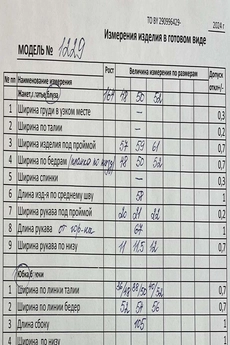 ТО BY 290996429-
2024 г
Измерения изделия в готовом виде
МОДЕЛЬ № 1229
№ пп Наименование измерения Рост Величина измерения по размерам Допуск откл+/-
Жакет, платье, блуза 164 48 50 52
1 Ширина груди в узком месте — 0,3
2 Ширина по талии — 0,2
3 Ширина изделия под проймой 57 59 61 0,7
4 Ширина по бедрам 48 50 52 0,7
5 Ширина спинки — 0,3
6 Длина изд-я по среднему шву 58 1
7 Ширина рукава под проймой 20 21 22 0,2
8 Длина рукава от гор-на 67 1
9 Ширина рукава по низу 11 11,5 12 0,7
Юбка, брюки
1 Ширина по линии талии 0,7
2 Ширина по линии бедер 52 54 56 0,7
3 Длина сбоку 105 1
4 Ширина по низу